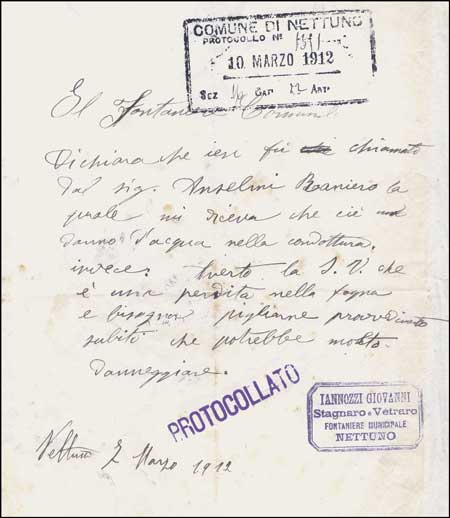 COMUNE DI NETTUNO
PROTOCOLLO N°
10 MARZO 1912
Sez Cat 22 Art
El Fontaniere Comunale
Dichiara che ieri fui chiamato
dal sig. Anselini Raniero la
quale mi diceva che cie un
danno d'acqua nella condottura.
invece: averto la S. V. che
è una perdita nella fogna
e bisogna pigliarne provvedimento
subiti che potrebbe molto
danneggiare.
PROTOCOLLATO
IANNOZZI GIOVANNI
Stagnaro e Vetraro
FONTANIERE MUNICIPALE
NETTUNO
Nettuno 7 Marzo 1912